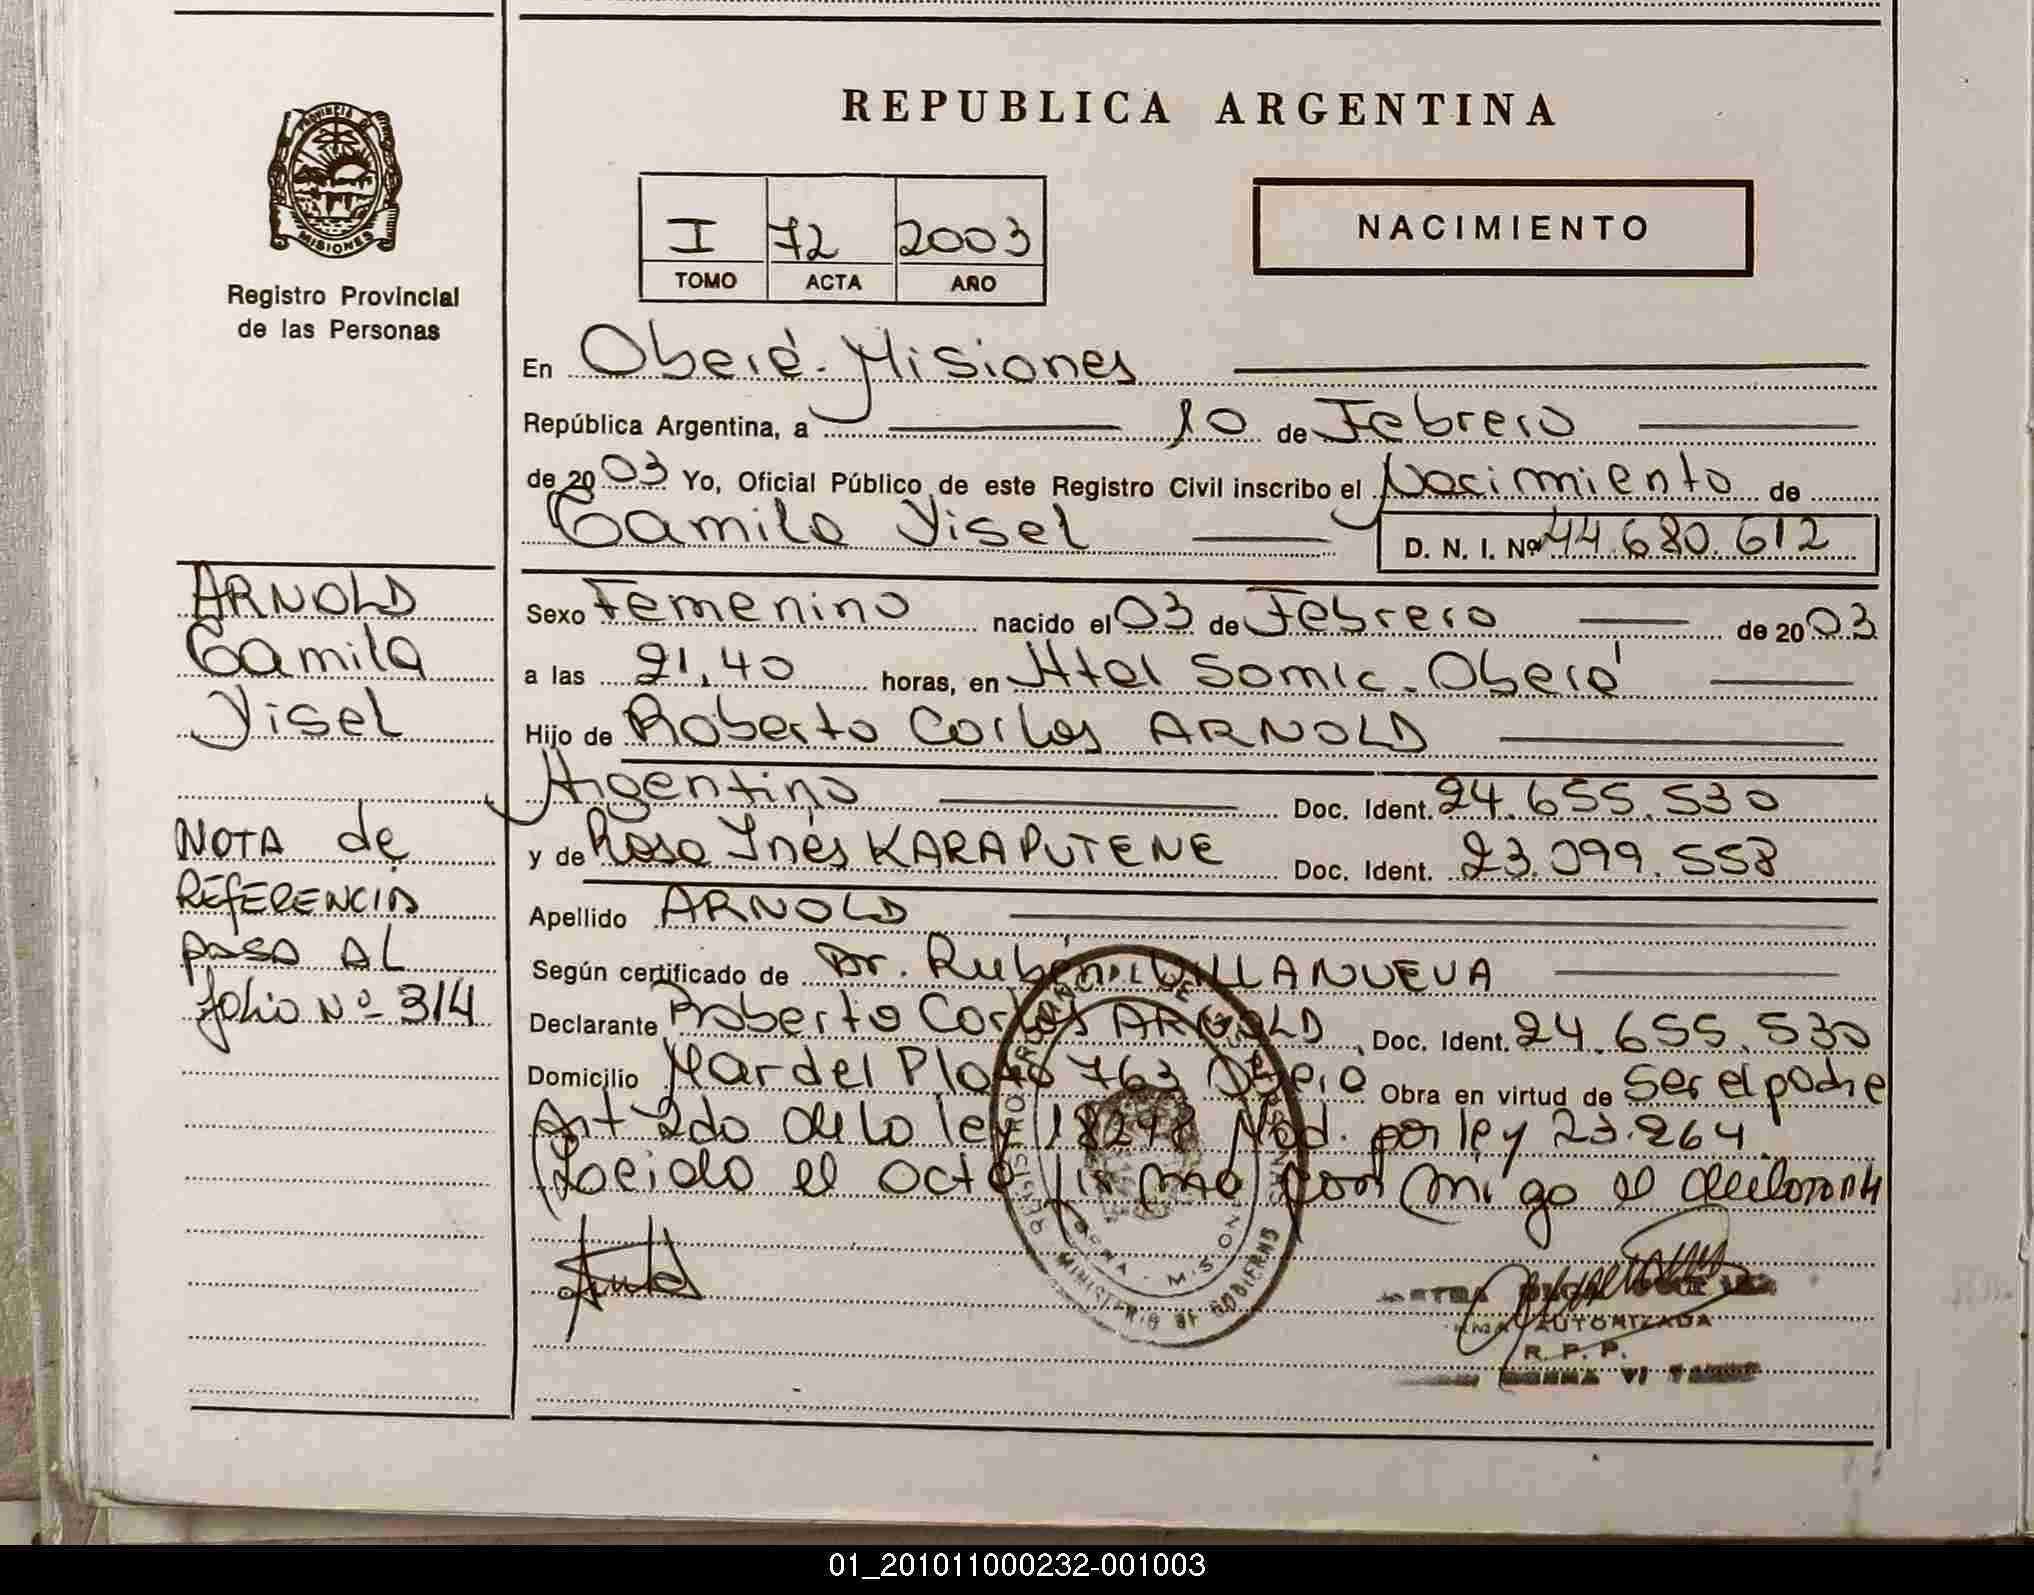 REPUBLICA ARGENTINA
PROVINCIA DE MISIONES
Registro Provincial
de las Personas
I 72 2003
TOMO ACTA AÑO
NACIMIENTO
En Oberá. Misiones
República Argentina, a 10 de Febrero
de 2003 Yo, Oficial Público de este Registro Civil inscribo el Nacimiento de
Camila Yisel D. N. I. Nº 44.680.612
ARNOLD
Camila
Yisel
NOTA de
REFERENCIA
pasa AL
folio Nº 314
Sexo Femenino nacido el 03 de Febrero de 2003
a las 21,40 horas, en Htal Samic. Oberá
Hijo de Roberto Carlos ARNOLD
Argentino Doc. Ident. 24.655.530
y de Rosa Inés KARAPUTENE Doc. Ident. 23.099.558
Apellido ARNOLD
Según certificado de Dr. Rubén VILLANUEVA
Declarante Roberto Carlos ARNOLD, Doc. Ident. 24.655.530
Domicilio Mar del Plata 763 Oberá Obra en virtud de ser el padre
Art 2do de la ley 18248 Mod. por ley 23.264
Leida el acta firma con migo el declarante
MINISTERIO DE GOBIERNO
AUTORIZADA
R. P. P.
01_201011000232-001003